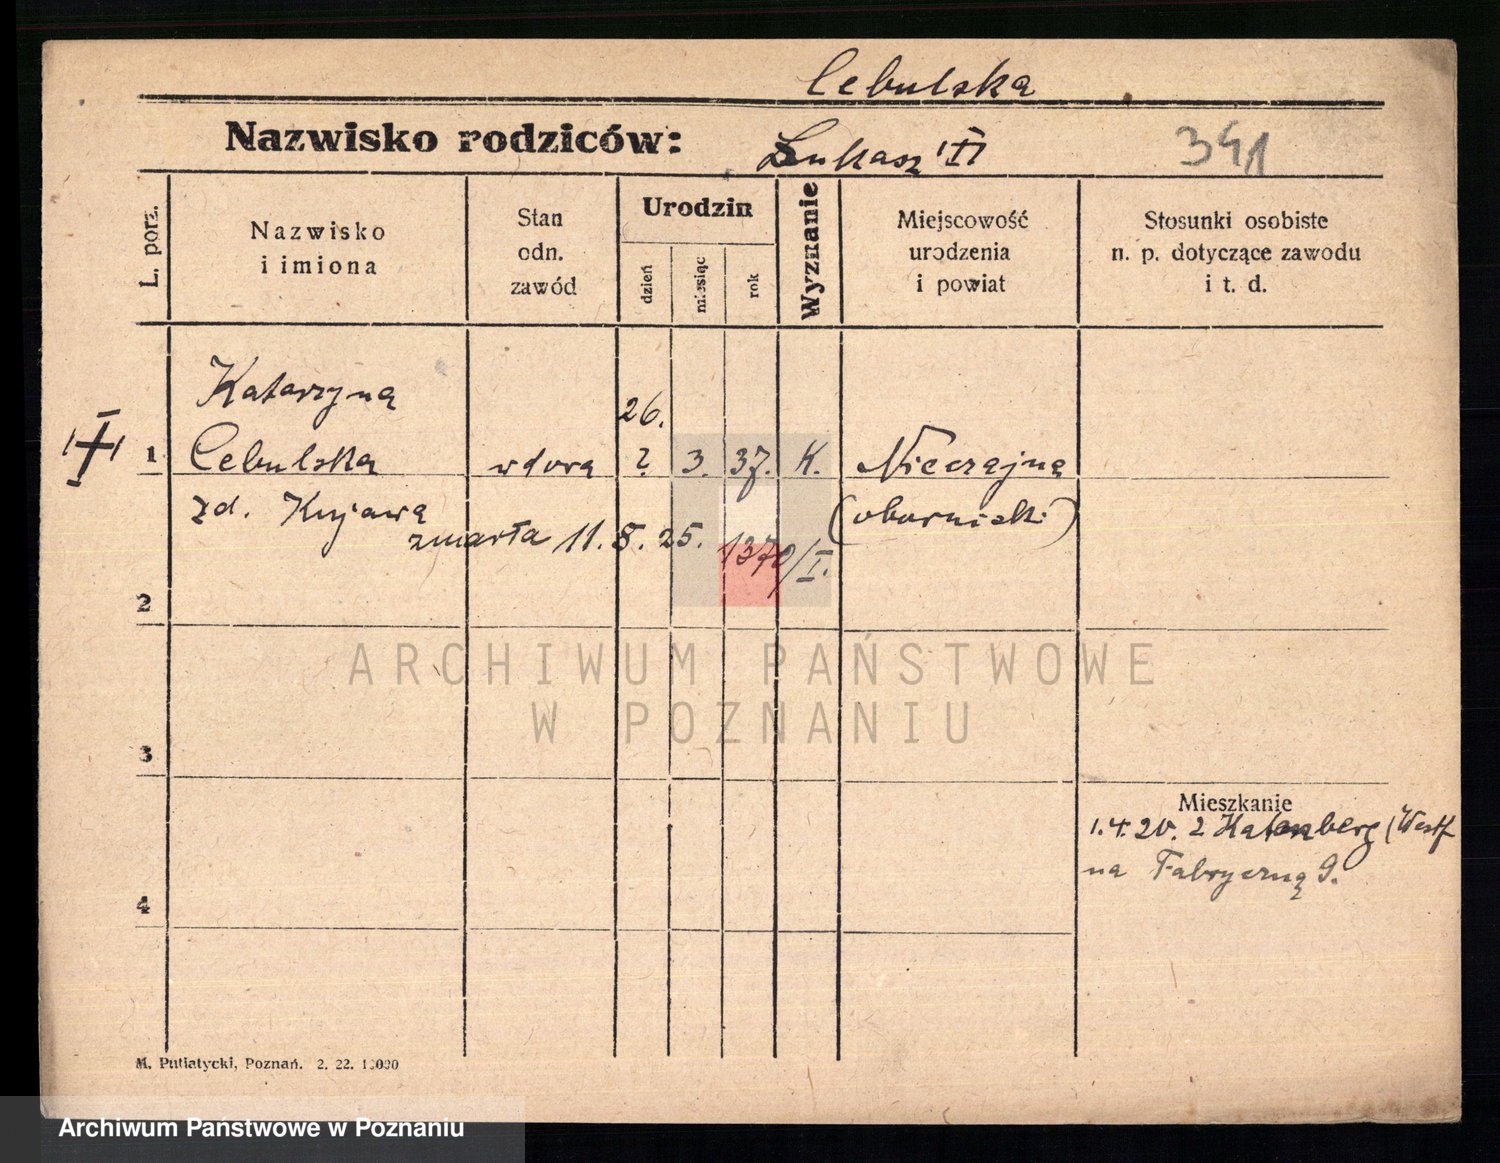 Cebulska
Nazwisko rodziców: Łukasz 'I' 341
L. porz.
Nazwisko
i imiona
Stan
odn.
zawód
Urodzin
dzień
miesiąc
rok
Wyznanie
Miejscowość
urodzenia
i powiat
Stosunki osobiste
n. p. dotyczące zawodu
i t. d.
Katarzyna
26.
1 Cebulska wdowa ? 3. 37. K. Nieczajna
zd. Kujawa (obornicki)
zmarła 11. 8. 25. 1370/I.
2
ARCHIWUM PAŃSTWOWE
W POZNANIU
3
Mieszkanie
1.4.20. z Katernberg (Westf
na Fabryczną 9.
4
M. Putiatycki, Poznań. 2. 22. 10000
Archiwum Państwowe w Poznaniu